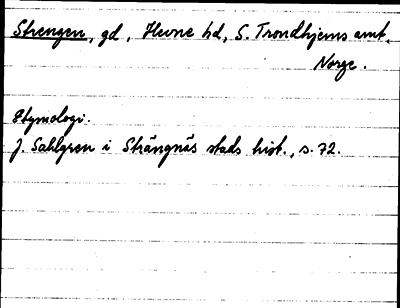 Strengen, gd, Hevne hd, S. Trondhjems amt,
Norge.
Etymologi.
J. Sahlgren i Strängnäs stads hist., s. 72.